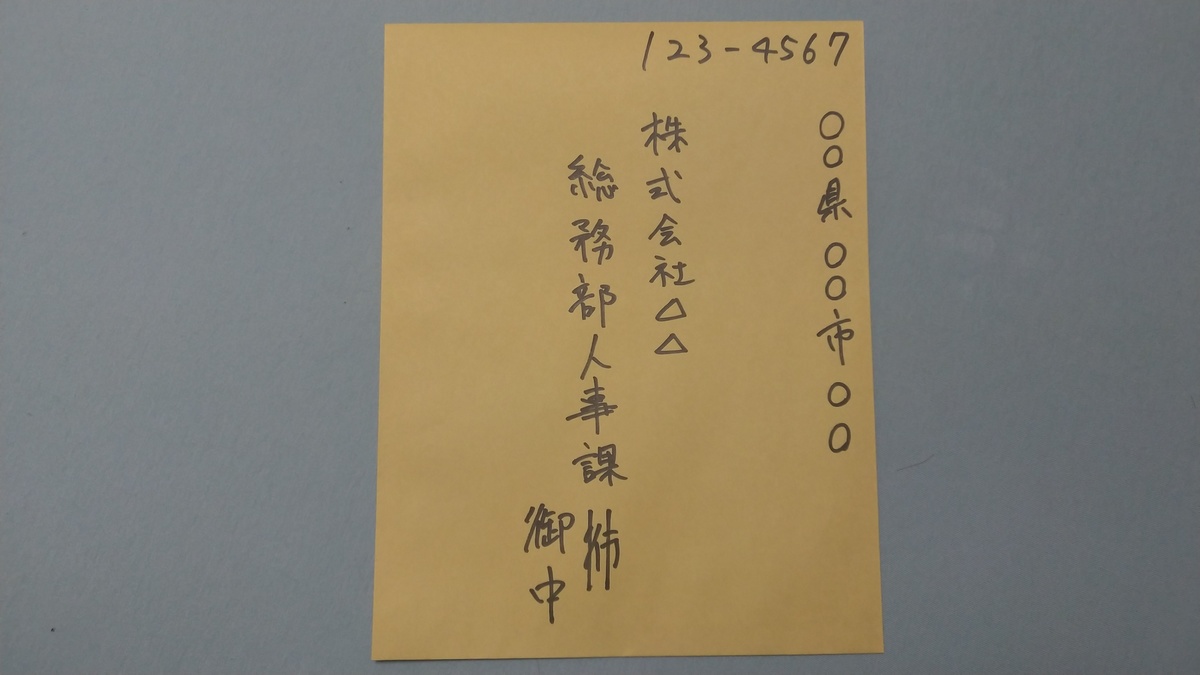 123-4567
○○県○○市○○
株式会社△△
総務部人事課 行
御中